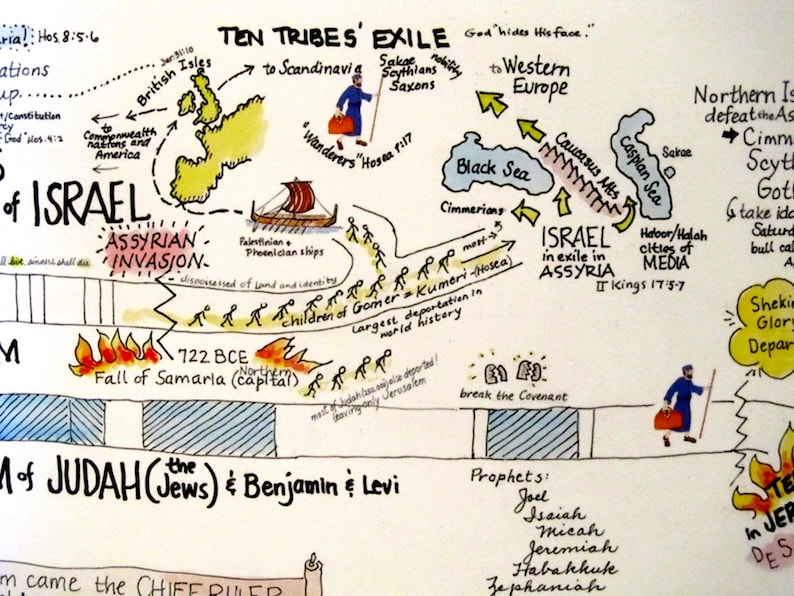 TEN TRIBES' EXILE
God "hides His face."
ria! Hos. 8:5-6
ations
up
Jer. 31:10
British Isles
to Scandinavia
Sakae
Scythians
Saxons
nobility
to Western
Europe
t/Constitution
rcy
of God" Hos. 4:2
to
Commonwealth
nations and
America
"Wanderers" Hosea 9:17
Northern Is
defeat the As
Cimm
Scyth
Goth
take ido
Saturd
bull cal
A
Black Sea
Caucasus Mts.
Caspian Sea
Sakae
Cimmerians
of ISRAEL
ASSYRIAN
INVASION
Palestinian &
Phoenician ships
ISRAEL
in exile in
ASSYRIA
Habor/Halah
cities of
MEDIA
II Kings 17:5-7
most
dispossessed of land and identity
children of Gomer = Kumeri - (Hosea)
largest deportation in
world history
M
722 BCE
Fall of Samaria (capital)
Northern
most of Judah also deported!
leaving only Jerusalem
break the Covenant
Sheki
Glory
Depar
M of JUDAH (the Jews) & Benjamin & Levi
Prophets:
Joel
Isaiah
Micah
Jeremiah
Habakkuk
Zephaniah
TE
in JER
DES
m came the CHIEF RULER